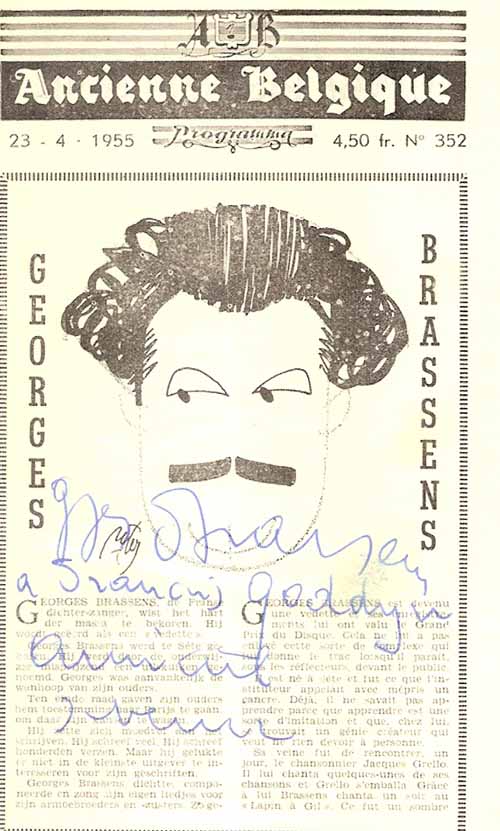 AB
Ancienne Belgique
23 - 4 - 1955
Programma
4,50 fr. N° 352
GEORGES
BRASSENS
Brassens
a Francis Goddyn
GEORGES BRASSENS, de Franse
dichter-zanger, wist het hart
der massa te bekoren. Hij
als een « Vedette ».
Georges Brassens werd te Sète ge-
de onderwij-
noemd. Georges was aanvankelijk de
wanhoop van zijn ouders.
Ten einde raad gaven zijn ouders
hem toestemming naar Parijs te gaan,
om daar zijn wagen.
Hij zette zich moedvol
schrijven. Hij schreef veel. Hij schreef
honderden verzen. Maar hij gelukte
er niet in de kleinste uitgever te in-
teresseren voor zijn geschriften.
Georges Brassens dichtte, compo-
neerde en zong zijn eigen liedjes voor
zijn armoebroeders en -zusters. Zoge-
GEORGES BRASSENS est devenu
une vedette
ments lui ont valu
Prix du Disque. Cela ne lui a pas
enlevé cette sorte de complexe qui
lui donne le trac lorsqu'il paraît,
sous les réflecteurs, devant le public
est né à Sète et fut ce que l'in-
stituteur appelait avec mépris un
cancre. Déjà, il ne savait pas ap-
prendre parce que apprendre est une
sorte d'imitation et que, chez lui,
un génie créateur qui
veut ne rien devoir à personne.
Sa veine fut de rencontrer, un
jour, le chansonnier Jacques Grello.
Il lui chanta quelques-unes de ses
chansons et Grello s'emballa. Grâce
à lui Brassens chanta un soir au
« Lapin à Gil ». Ce fut un sombre